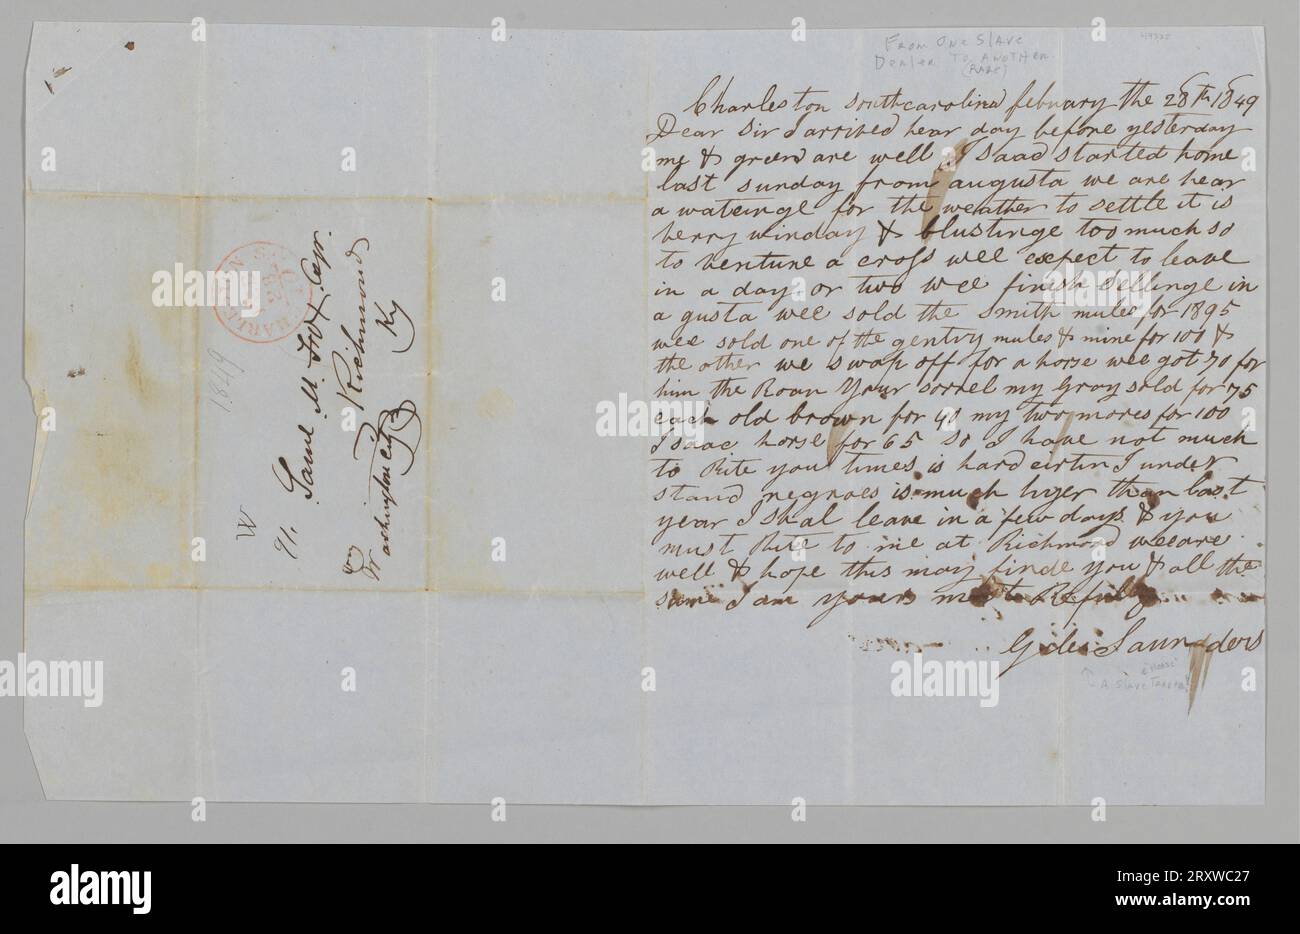 From One Slave
Dealer To Another
(RARE)
Charleston southcarolina febuary the 28th 1849
Dear Sir I arrived hear day before yesterday
me & green are well Isaac started home
last sunday from augusta we are hear
a wateinge for the weather to settle it is
verry winday & blustinge too much so
to venture a cross wee expect to leave
in a day or two wee finish sellinge in
a gusta wee sold the Smith mules for 1895
wee sold one of the gentry mules & mine for 100 &
the other we swap off for a horse wee got 70 for
him the Roan Your sorrel my Gray sold for 75
each old brown for 40 my two mores for 100
Isaac horse for 65 so I have not much
to Rite you times is hard I under
stand negroes is much hyer than last
year I shal leave in a few days & you
must Rite to me at Richmond wee are
well & hope this may finde you & all the
same I am yours
Giles Saunders
A Slave Trader
CHARLESTON S.C.
1849
W
Saml M. Fox Esqr.
Richmond
Ky
alamy
Image ID: 2RXWC27
www.alamy.com